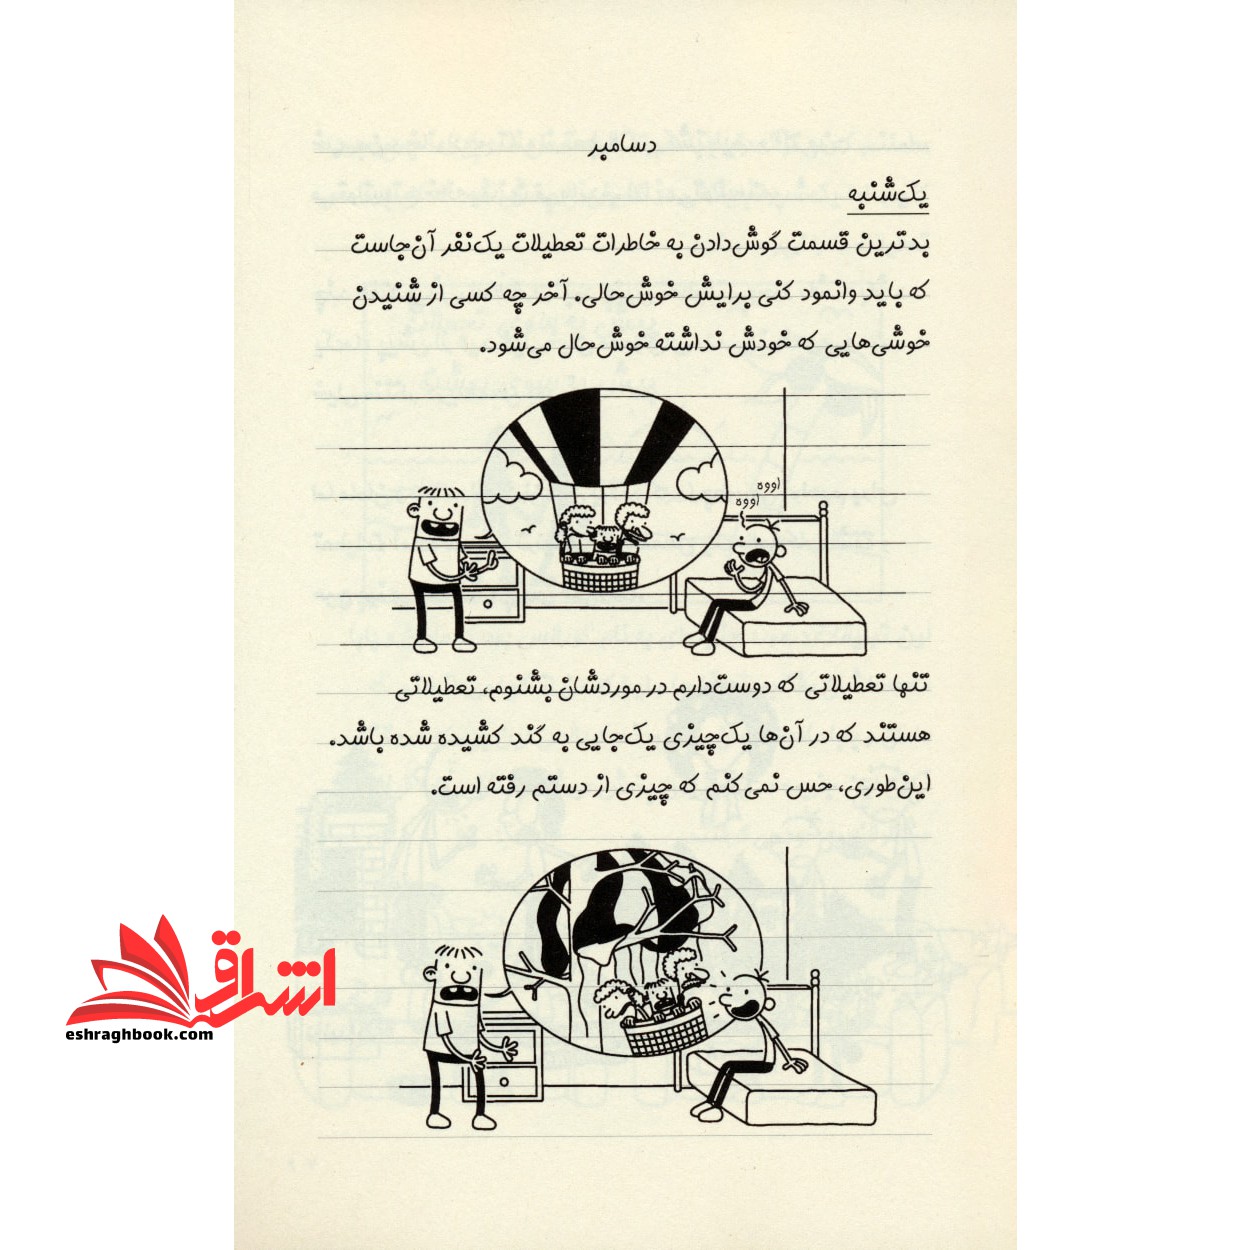 دسامبر
یک‌شنبه
بدترین قسمت گوش‌دادن به خاطرات تعطیلات یک‌نفر آن‌جاست
که باید وانمود کنی برایش خوش‌حالی. آخر چه کسی از شنیدن
خوشی‌هایی که خودش نداشته خوش‌حال می‌شود.
اووه
اووه
تنها تعطیلاتی که دوست‌دارم در موردشان بشنوم، تعطیلاتی
هستند که در آن‌ها یک‌چیزی یک‌جایی به گند کشیده شده باشد.
این‌طوری، حس نمی‌کنم که چیزی از دستم رفته است.
اشراق
eshraghbook.com